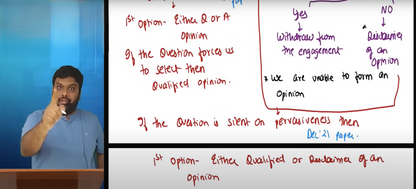 1st Option- Either Q or A
Opinion
If the Question forces us
to select then
Qualified opinion.
Yes
NO
Withdraw from
the engagement
Disclaimer
of an
Opinion
* We are unable to form an
Opinion
If the Question is silent on pervasiveness then
Dec'21 paper.
1st Option- Either Qualified or Disclaimer of an
opinion